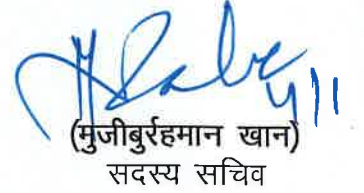 4/11
(मुजीबुर्रहमान खान)
सदस्य सचिव